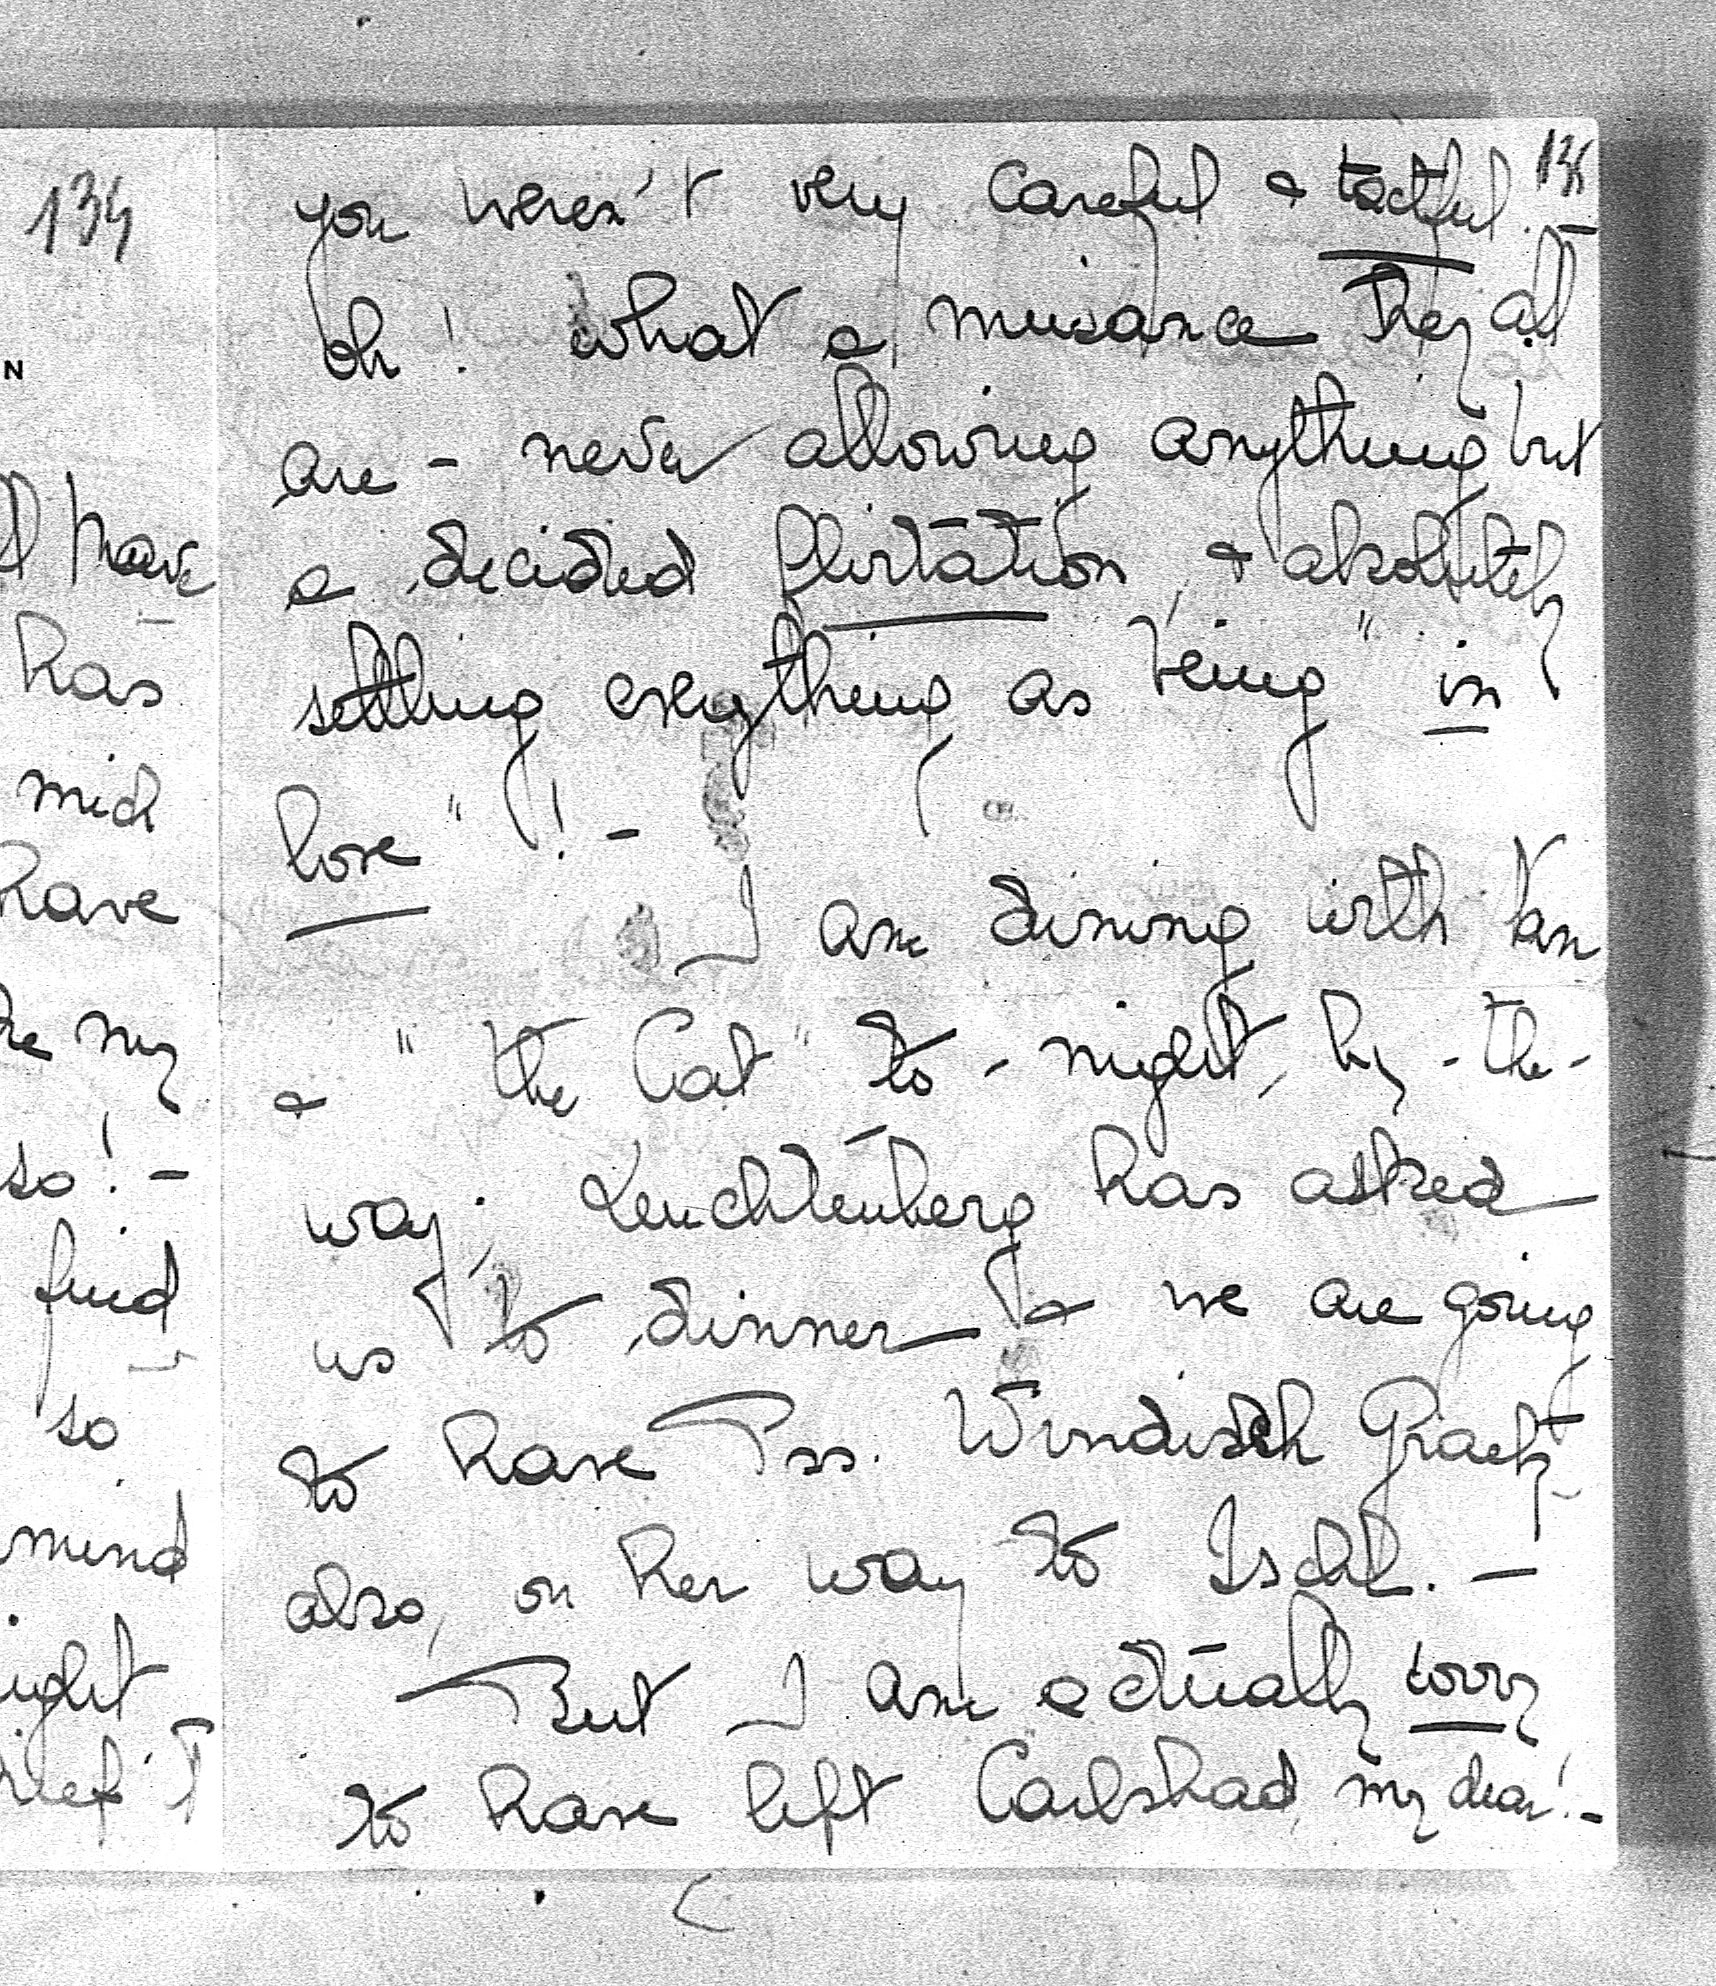 134
N
I have
has
mich
have
my
so! -
find
so
mind
ight
135
you weren't very careful & tactful. -
oh! what a nuisance they all
are - never allowing anything but
a decided flirtation, & absolutely
settling everything as being "in
love"! -
I am dining with Van
& "the Cat" to-night, by-the-
way; Leuchtenberg has asked
us to dinner & we are going
to have Pss. Windisch Graetz
also, on her way to Ischl. -
But I am actually sorry
to have left Carlsbad, my dear! -